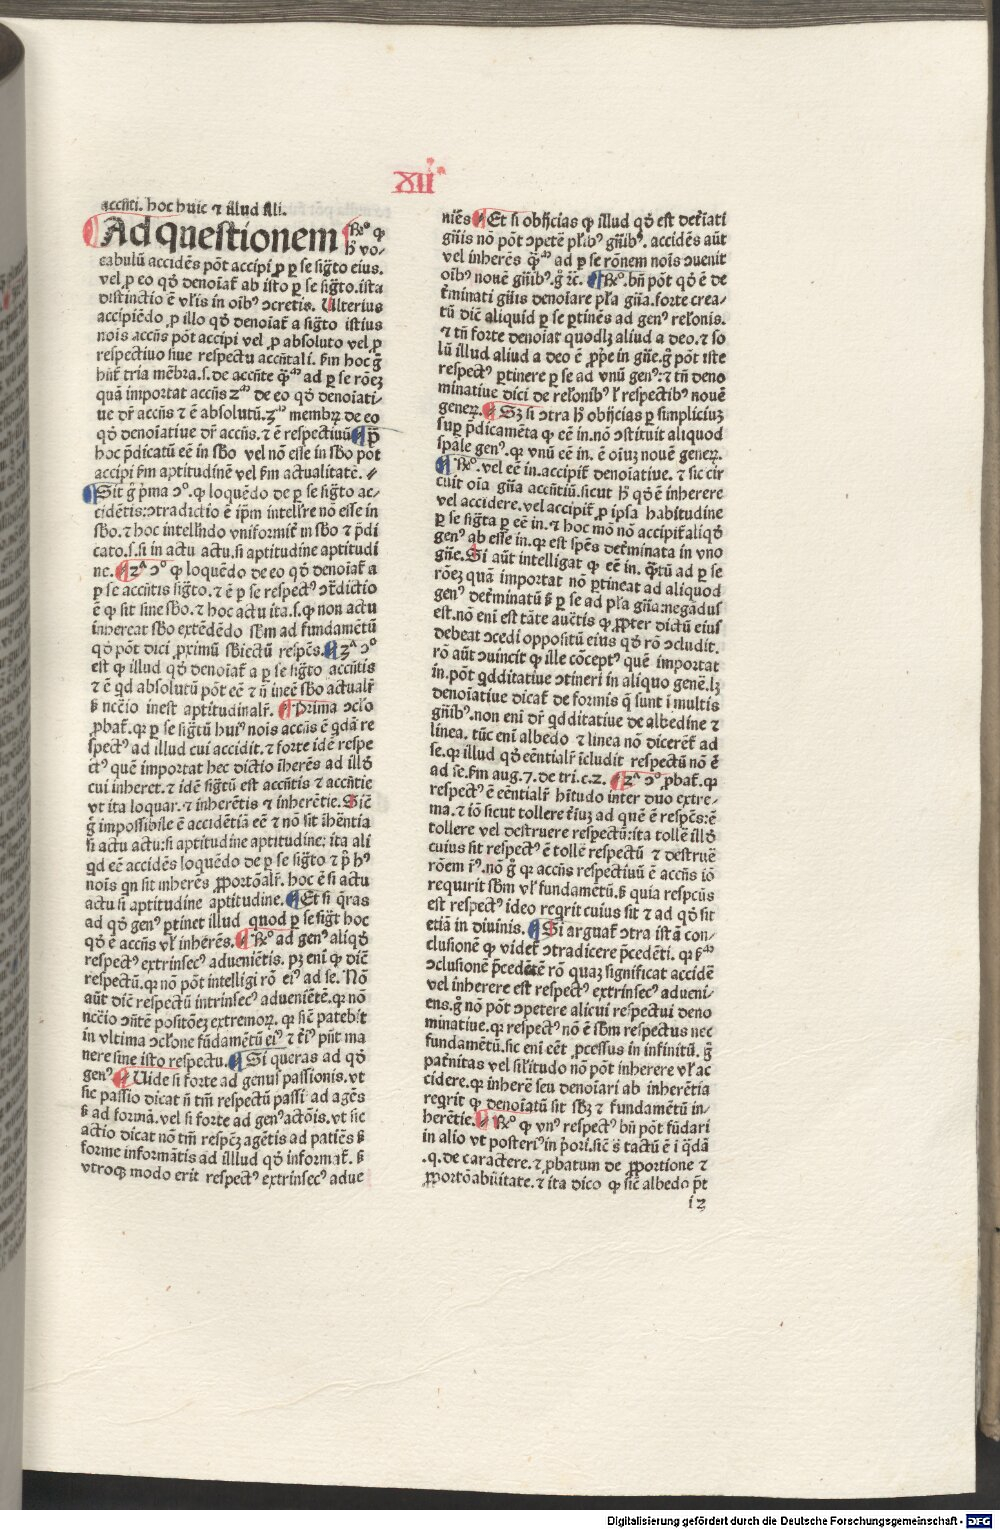 XII
accñti. hoc huic ⁊ illud illi.
Ad questionem ℞° ꝙ
h̄ vo-
cabulū accidēs pōt accipi ꝓ ꝑ se sigᷓto eius.
vel ꝓ eo qd̛ denoīat᷑ ab isto ꝑ se sigᷓto. ista
distinctio ē vl̓is in oīb⁹ ꝯcretis. Ulterius
accipiēdo ꝓ illo qd̛ denoīat᷑ a sigᷓto istius
nois accñs pōt accipi vel ꝓ absoluto vel ꝓ
respectiuo siue respectu accñtali. fm hoc gͦ
hñt tria mēbra. s. de accñte
quā importat accñs
ue dr̄ accñs ⁊ ē absolutū. membrꝝ de eo
qd̛ denoīatiue dr̄ accñs. ⁊ ē respectiuū
hoc p̄dicatū eē in sb̄o vel nō esse in sb̄o pōt
accipi fm aptitudinē vel fm actualitatē.
Sit gͦ p̄ma ɔ°. ꝙ loquēdo de ꝑ se sigᷓto ac-
cidētis: ꝯtradictio ē ip̄m intell̓re nō esse in
sb̄o. ⁊ hoc intell̓ndo vniformit᷑ in sb̄o ⁊ p̄di
cato. s. si in actu actu. si aptitudine aptitudi
ne. 2ᵃ ɔ° ꝙ loquēdo de eo qd̛ denoīat᷑ a
ꝑ se accñtis sigᷓto. ⁊ ē ꝑ se respect⁹ ꝯt̄dictio
ē ꝙ sit sine sb̄o. ⁊ hoc actu ita. s. ꝙ non actu
inhereat sb̄o extēdēdo sb̄m ad fundamētū
qd̛ pōt dici ꝓximū sb̄iectū respēs. 3ᵃ ɔ°
est ꝙ illud qd̛ denoīat᷑ a ꝑ se sigᷓto accñtis
⁊ ē qd absolutū pōt eē ⁊ ñ ineē sb̄o actualr̄
ß nccīo inest aptitudinalr̄. Prima ɔclo
ꝓbat᷑. qꝛ ꝑ se sigᷓtū hui⁹ nois accñs ē qdā re
spect⁹ ad illud cui accidit. ⁊ forte idē respe
ct⁹ quē importat hec dictio īherēs ad illd̛
cui inheret. ⁊ idē sigᷓtū est accñtis ⁊ accñtie
vt ita loquar. ⁊ inherētis ⁊ inherētie. Sic̄
gͦ impossibile ē accidētiā eē ⁊ nō sit īhēntia
si actu actu: si aptitudine aptitudine: ita ali
qd eē accidēs loquēdo de ꝑ se sigᷓto ⁊ p̄ h⁹
nois qn sit inherēs ꝓportōalr̄. hoc ē si actu
actu si aptitudine aptitudine. Et si q̄ras
ad qd̛ gen⁹ ꝑtinet illud quod ꝑ se sigᷓt hoc
qd̛ ē accñs vl̓ inherēs. ℞° ad gen⁹ aliqd̛
respect⁹ extrinsec⁹ adueniētis. pꝫ eni ꝙ dic̄
respectū. qꝛ nō pōt intelligi rō ei⁹ ad se. Nō
aūt dic̄ respectū intrinsec⁹ adueniētē. qꝛ nō
nccīo ꝯñtē positōeꝫ extremoꝝ. qꝛ sic̄ patebit
in vltima ɔclone fūdamētū ei⁹ ⁊ t̓i⁹ pñt ma
nere sine isto respectu. Si queras ad qd̛
gen⁹ Uide si forte ad genus passionis. vt
sic passio dicat ñ tm̄ respectū passi ad agēs
ß ad formā. vel si forte ad gen⁹ actōis. vt sic
actio dicat nō tm̄ respēꝫ agētis ad patiēs ß
forme informātis ad illlud qd̛ informat᷑. ß
vtroqꝫ modo erit respect⁹ extrinsec⁹ adue
niēs Et si obijcias ꝙ illud qd̛ est det̓iati
gñis nō pōt ꝯpetē pl̓ib⁹ gñib⁹. accidēs aūt
vel inherēs ad ꝑ se rōnem nois ꝯuenit
oīb⁹ nouē gñib⁹. gͦ ⁊c̄. ℞°. bñ pōt qd̛ ē de
t̓minati gñis denoīare pl̓a gña. forte crea-
tū dic̄ aliquid ꝑ se ꝑtinēs ad gen⁹ relonis.
⁊ tñ forte denoīat quodlꝫ aliud a deo. ⁊ so
lū illud aliud a deo ē ꝓpe in gñe. gͦ pōt iste
respect⁹ ꝑtinere ꝑ se ad vnū gen⁹: ⁊ tñ deno
minatiue dici de relonib⁹ l̓ respectib⁹ nouē
generꝝ. Sꝫ si ꝯtra h̄ obijcias ꝑ simpliciuꝫ
suꝑ p̄dicamēta ꝙ eē in. nō ꝯstituit aliquod
sp̄ale gen⁹. qꝛ vnū eē in. ē oīuꝫ nouē generꝝ.
℞°. vel eē in. accipit᷑ denoīatiue. ⁊ sic cir
cuit oīa gñā accñtiū. sicut h̄ qd̛ ē inherere
vel accidere. vel accipit᷑ ꝓ ipsa habitudine
ꝑ se sigᷓta ꝑ eē in. ⁊ hoc mō nō accipit᷑ aliqd̛
gen⁹ ab esse in. qꝛ est spēs det̓minata in vno
gñe. Si aūt intelligat ꝙ eē in. q̄tū ad ꝑ se
rōeꝫ quā importat nō ꝑtineat ad aliquod
gen⁹ det̓minatū ß ꝑ se ad pl̓a gñā: negādus
est. nō eni est tāte auc̄tis ꝙ ꝓpter dictū eius
debeat ꝯcedi oppositū eius qd̛ rō ɔcludit.
rō aūt ꝯuincit ꝙ ille cōcept⁹ quē importat
in. pōt qdditatiue ꝯtineri in aliquo genē. lꝫ
denoīatiue dicat᷑ de formis q̄ sunt ī multis
gñib⁹. non eni dr̄ qdditatiue de albedine ⁊
linea. tūc eni albedo ⁊ linea nō dicerēt᷑ ad
se. qꝛ illud qd̛ eēntialr̄ īcludit respectū nō ē
ad se. fm aug. 7. de tri. c. 2. 2ᵃ ɔ° ꝓbat᷑. qꝛ
respect⁹ ē eēntialr̄ hītudo inter duo extre-
ma. ⁊ iō sicut tollere t̓iuꝫ ad quē ē respēs: ē
tollere vel destruere respectū: ita tollē illd̛
cuius sit respect⁹ ē tollē respectū ⁊ destruē
rōem r̄⁹. nō gͦ qꝛ accñs respectiuū ē accñs iō
requirit sb̄m vl̓ fundamētū. ß quia respcūs
est respect⁹ ideo reqrit cuius sit ⁊ ad qd̛ sit
etiā in diuinis. Si arguat᷑ ꝯtra istā con-
clusionē ꝙ videt᷑ ꝯtradicere p̄cedēti. qꝛ
ɔclusionē p̄cedētē rō quaꝫ significat accidē
vel inherere est respect⁹ extrinsec⁹ adueni-
ens. gͦ nō pōt ꝯpetere alicui respectui deno
minatiue. qꝛ respect⁹ nō ē sb̄m respectus nec
fundamētū. sic eni eēt ꝓcessus in infinitū. gͦ
pat̓nitas vel sil̓itudo nō pōt inherere vl̓ ac
cidere. qꝛ inherē seu denoīari ab inherētia
reqrit ꝙ denoīatū sit sb̄ꝫ ⁊ fundamētū in-
herētie. ℞° ꝙ vn⁹ respect⁹ bñ pōt fūdari
in alio vt posteri⁹ in p̄ori. sic̄ s̄ tactū ē ī qdā
.q. de caractere. ⁊ ꝓbatum de ꝓportione ⁊
ꝓportōabilitate. ⁊ ita dico ꝙ sic̄ albedo p̄t
i 2
Digitalisierung gefördert durch die Deutsche Forschungsgemeinschaft - DFG